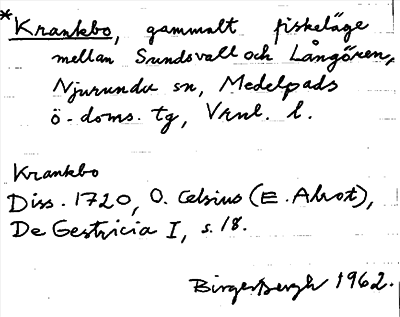 *Krankbo, gammalt fiskeläge
mellan Sundsvall och Långören,
Njurunda sn, Medelpads
ö-doms. tg, Vrnl. l.
Krankbo
Diss. 1720, O. Celsius (E. Alrot),
De Gestricia I, s. 18.
Birger Bergh 1962.